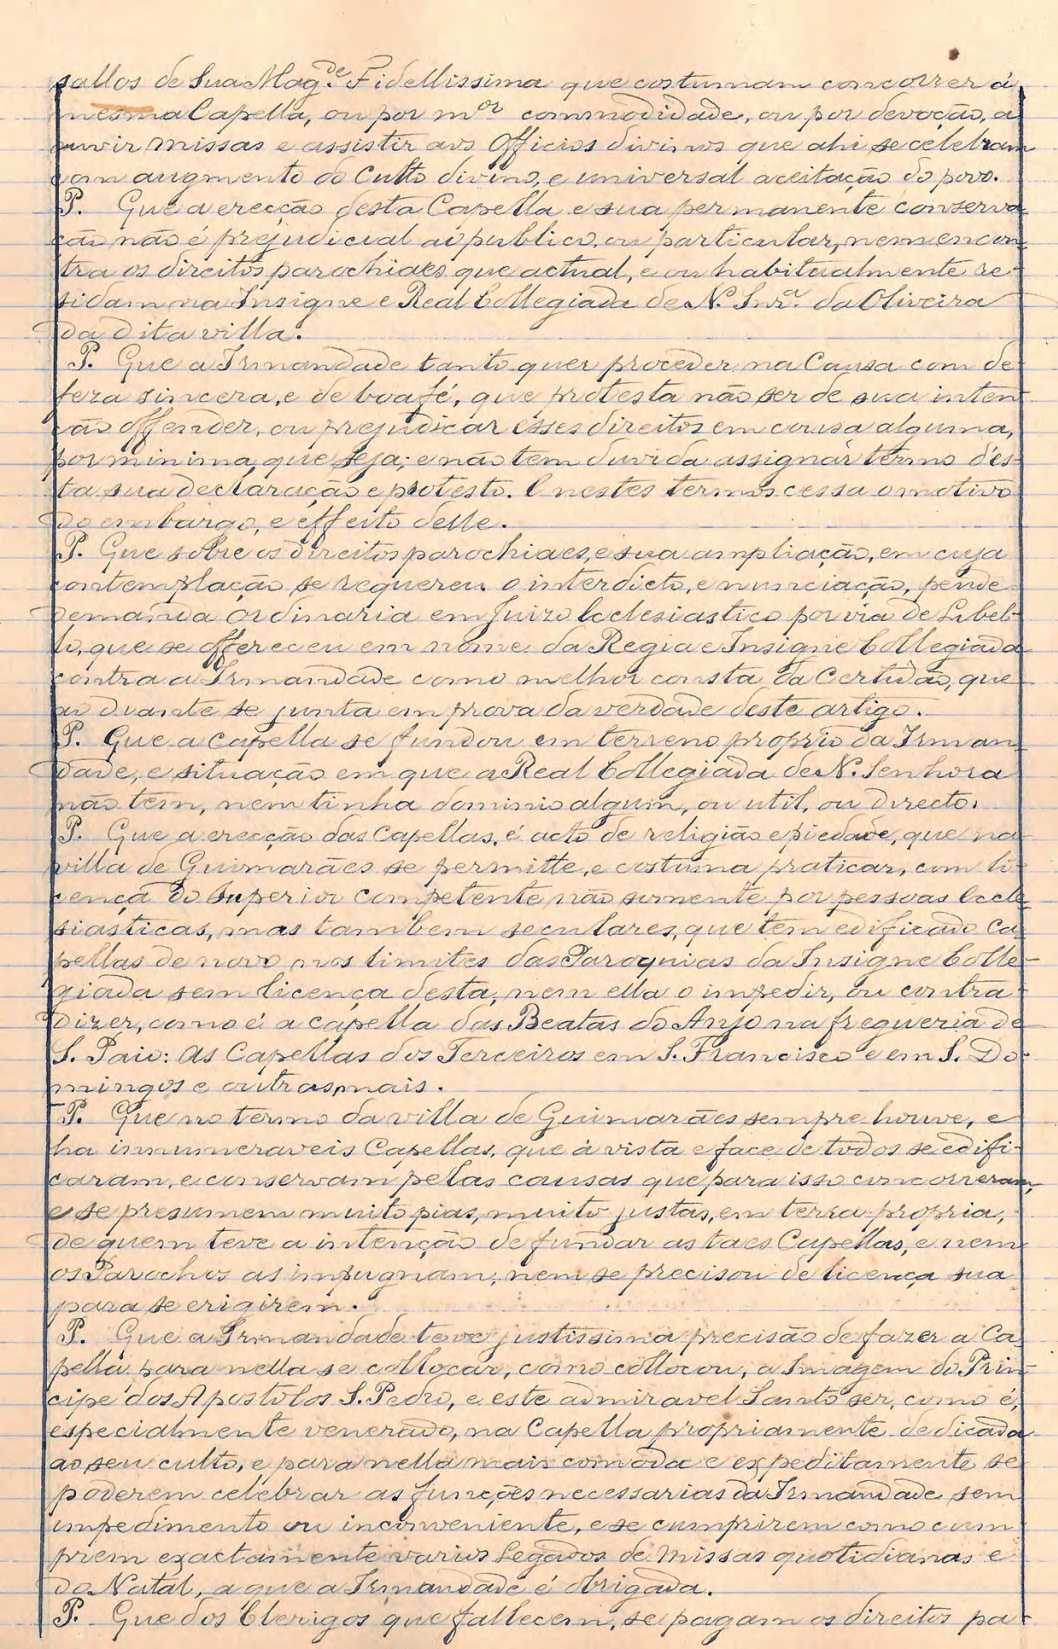 sallos de Sua Mag.de Fidellissima que costumam concorrer á
mesma Capella, ou por m.or commodidade, ou por devoção, a
ouvir missas e assistir aos Officios divinos que ahi se celebram
com augmento do Culto divino, e universal aceitação do povo.
P. Que a erecção desta Capella e sua permanente conserva
ção não é prejudicial ao publico, ou particular, nem encon
tra os direitos parochiaes que actual, e ou habitualmente re-
sidam na Insigne e Real Collegiada de N. Snr.a da Oliveira
da dita villa.
P. Que a Irmandade tanto quer proceder na Causa com de
feza sincera, e de boa fé, que protesta não ser de sua inten
ção offender, ou prejudicar esses direitos em cousa alguma,
por minima que seja; e não tem duvida assignar termo d'es
ta sua declaração e protesto. E nestes termos cessa o motivo
do embargo, e effeito delle.
P. Que sobre os direitos parochiaes, e sua ampliação, em cuja
contemplação se requereu o interdicto, e nunciação, pende
demanda Ordinaria em Juizo Ecclesiastico por via de Libel-
lo, que se offereceu em nome da Regia e Insigne Collegiada
contra a Irmandade como melhor consta da Certidão, que
ao duante se junta em prova da verdade deste artigo.
P. Que a Capella se fundou em terreno proprio da Irman
dade, e situação em que a Real Collegiada de N. Senhora
não tem, nem tinha dominio algum, ou util, ou directo.
P. Que a erecção das Capellas, é acto de religião e piedade, que na
villa de Guimarães se permitte, e costuma praticar, com li
cença do Superior competente não somente por pessoas Eccle
siasticas, mas tambem seculares, que tem edificado Ca
pellas de novo nos limites das Paroquias da Insigne Colle-
giada sem licença desta, nem ella o impedir, ou contra
dizer, como é a capella das Beatas do Anjo na freguezia de
S. Paio: As Capellas dos Terceiros em S. Francisco e em S. Do-
mingos e outras mais.
P. Que no termo da villa de Guimarães sempre houve, e
ha innumeraveis Capellas, que á vista e face de todos se edifi-
caram, e conservam pelas causas que para isso concorreram,
e se presumem muito pias, muito justas, em terra propria,
de quem teve a intenção de fundar as taes Capellas, e nem
os Parochos as impugnam, nem se precisou de licença sua
para se erigirem.
P. Que a Irmandade teve justissima precisão de fazer a Ca
pella para nella se collocar, como collocou, a Imagem do Prin-
cipe dos Apostolos S. Pedro, e este admiravel Santo ser, como é,
especialmente venerado, na Capella propriamente dedicada
ao seu culto, e para nella mais comoda e expeditamente se
poderem celebrar as funções necessarias da Irmandade sem
impedimento ou inconveniente, e se cumprirem como cum
prem exactamente varios Legados de Missas quotidianas e
do Natal, a que a Irmandade é obrigada.
P. Que dos Clerigos que fallecem, se pagam os direitos pa-